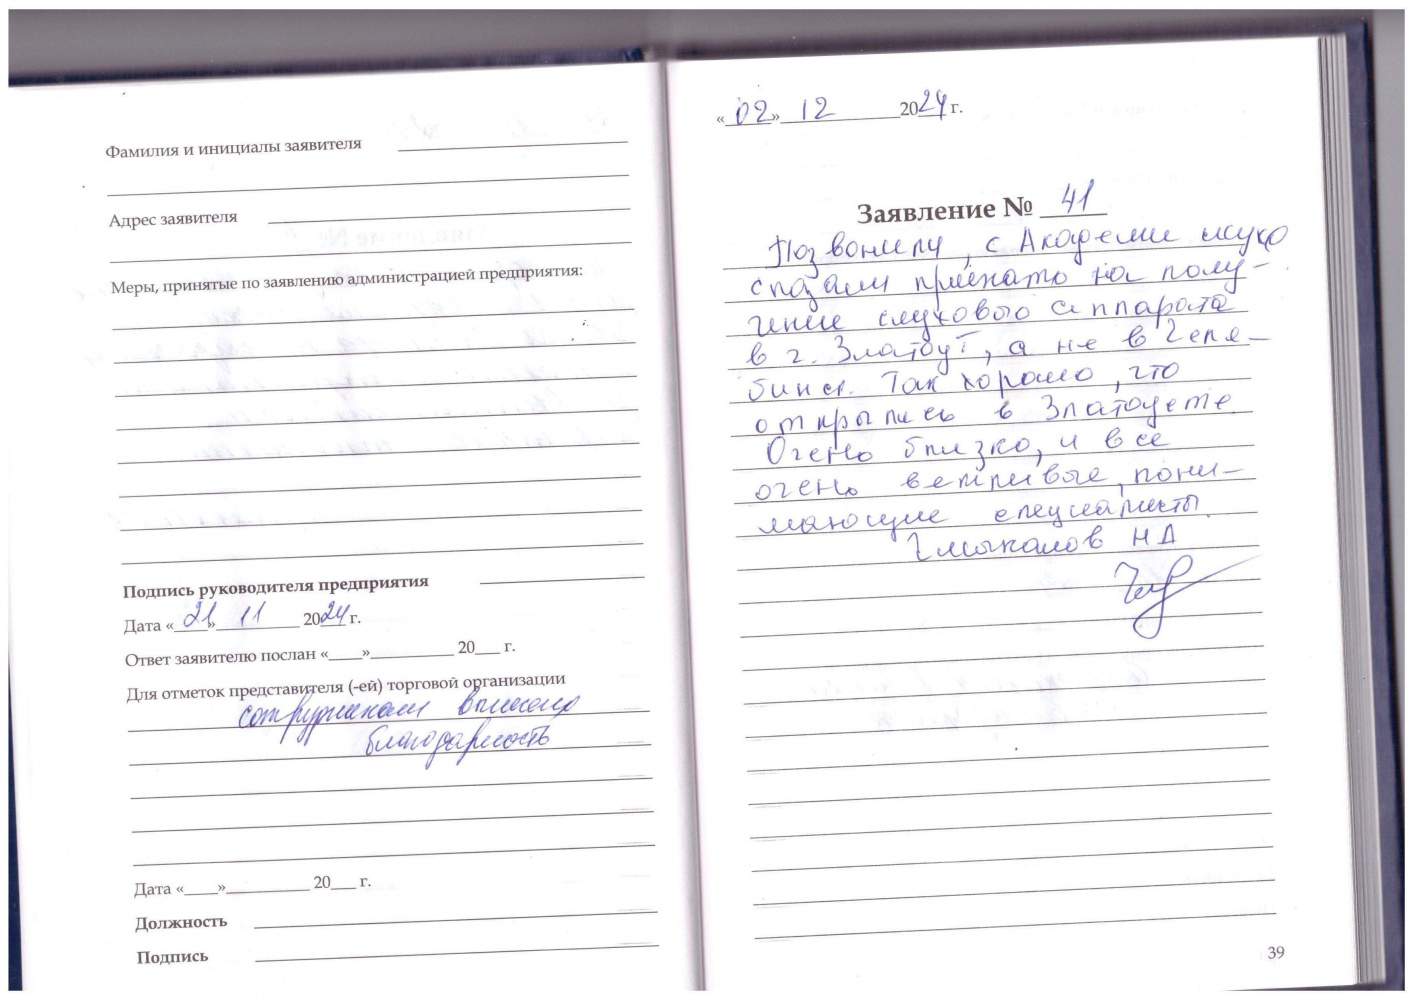 Фамилия и инициалы заявителя
Адрес заявителя
Меры, принятые по заявлению администрацией предприятия:
Подпись руководителя предприятия
Дата «21» 11 2024 г.
Ответ заявителю послан «____»__________ 20___ г.
Для отметок представителя (-ей) торговой организации
сотрудникам
благодарность
Дата «____»__________ 20___ г.
Должность
Подпись
«02» 12 2024 г.
Заявление № 41
Позвонили, с Академии слуха
сказали приехать на полу-
чение слухового аппарата
в г. Златоуст, а не в Челя-
бинск. Так хорошо, что
открылись в Златоусте.
Очень близко, и все
очень вежливые, пони-
мающие специалисты.
НД
39